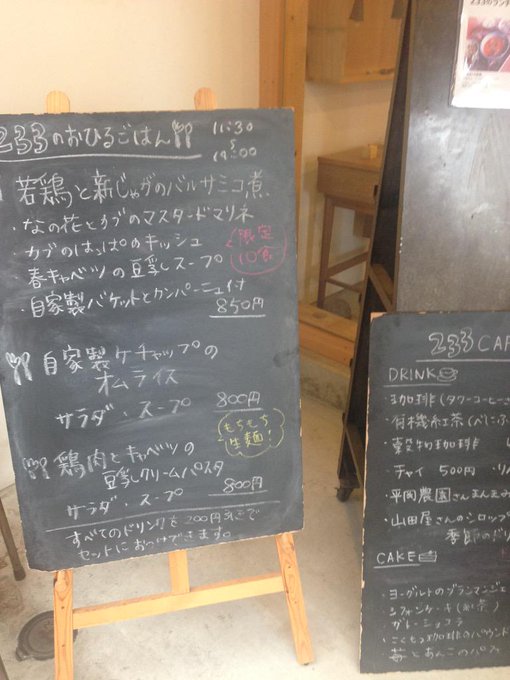 233のおひるごはん 11:30
14:00
若鶏と新じゃがのバルサミコ煮
・なの花とカブのマスタードマリネ
・カブのはっぱのキッシュ
春キャベツの豆乳スープ
・自家製バケットとカンパーニュ付
850円
限定
10食
自家製ケチャップの
オムライス
サラダ・スープ 800円
もちもち
生麺!
鶏肉とキャベツの
豆乳クリームパスタ
サラダ・スープ 800円
すべてのドリンクを200円引で
セットにおつけできます。
233 CAF
DRINK
珈琲(タワーコーヒーさ
有機紅茶(べにふ
穀物珈琲
チャイ 500円
平岡農園さん
山田屋さんのシロップ
季節の
CAKE
・ヨーグルトのブランマンジェ
シフォンケーキ(お茶)
ガトーショコラ
・こくもつ珈琲のパウンド
・苺とあんこのパフェ